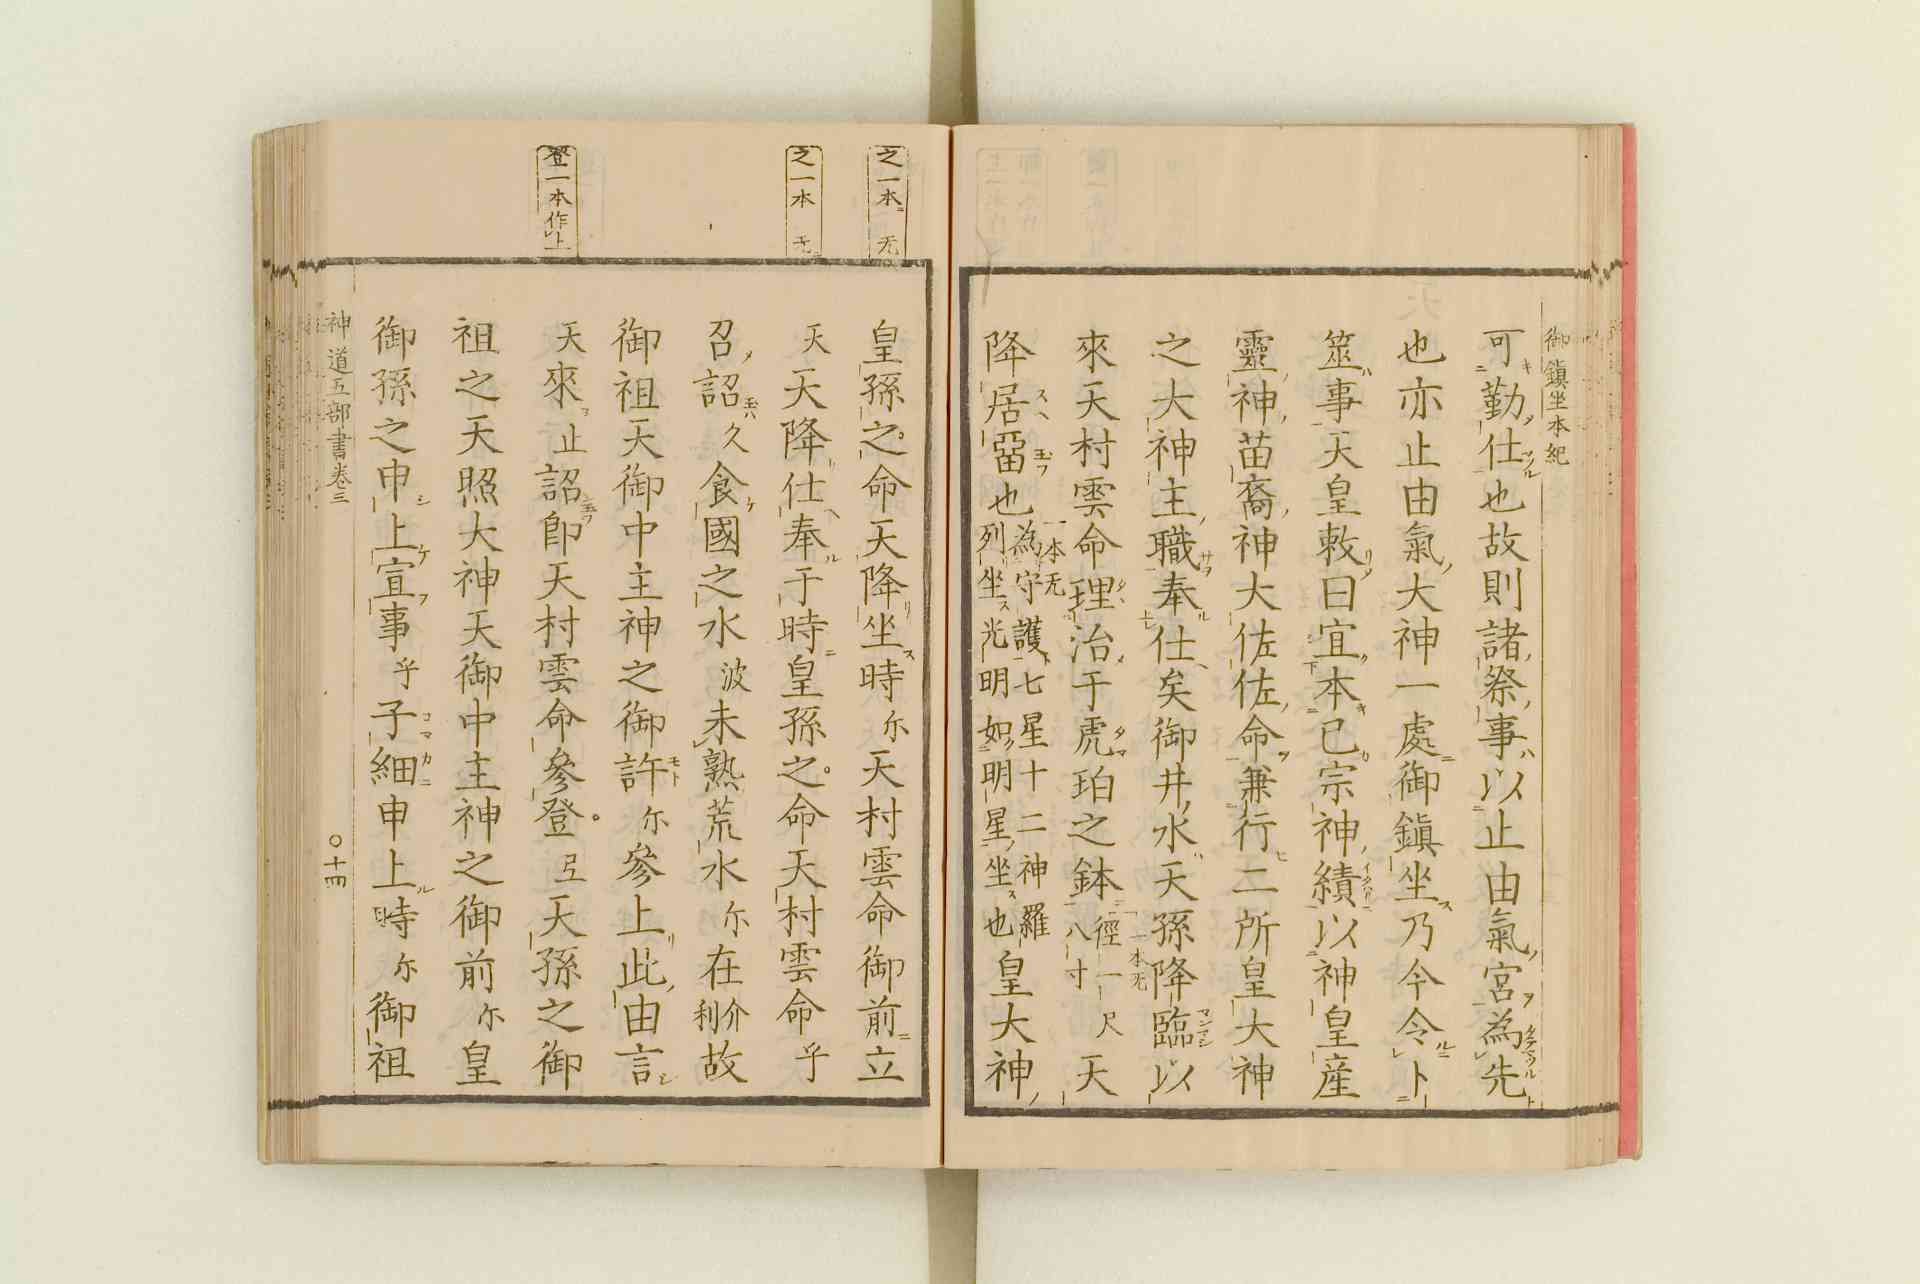 御鎮坐本紀
可勤仕也故則諸祭事以止由氣宮為先
也亦止由氣大神一處御鎮坐乃今令卜
筮事天皇敕曰宜本己宗神績以神皇産
靈神苗裔神大佐佐命兼行二所皇大神
之大神主職奉仕矣御井水天孫降臨以
來天村雲命理治于虎珀之鉢
一本无
徑一尺
八寸
天
降居
也
一本无
為守護七星十二神羅
列坐光明如明星坐也
皇大神
之一本无
之一本无
登一本作上
皇孫之命天降坐時尓天村雲命御前立
天天降仕奉于時皇孫之命天村雲命乎
召詔久食國之水波未熟荒水尓在介利故
御祖天御中主神之御許尓參上此由言
天來止詔卽天村雲命參登弖天孫之御
祖之天照大神天御中主神之御前尓皇
御孫之申上宣事乎子細申上時尓御祖
神道五部書卷三
〇十四